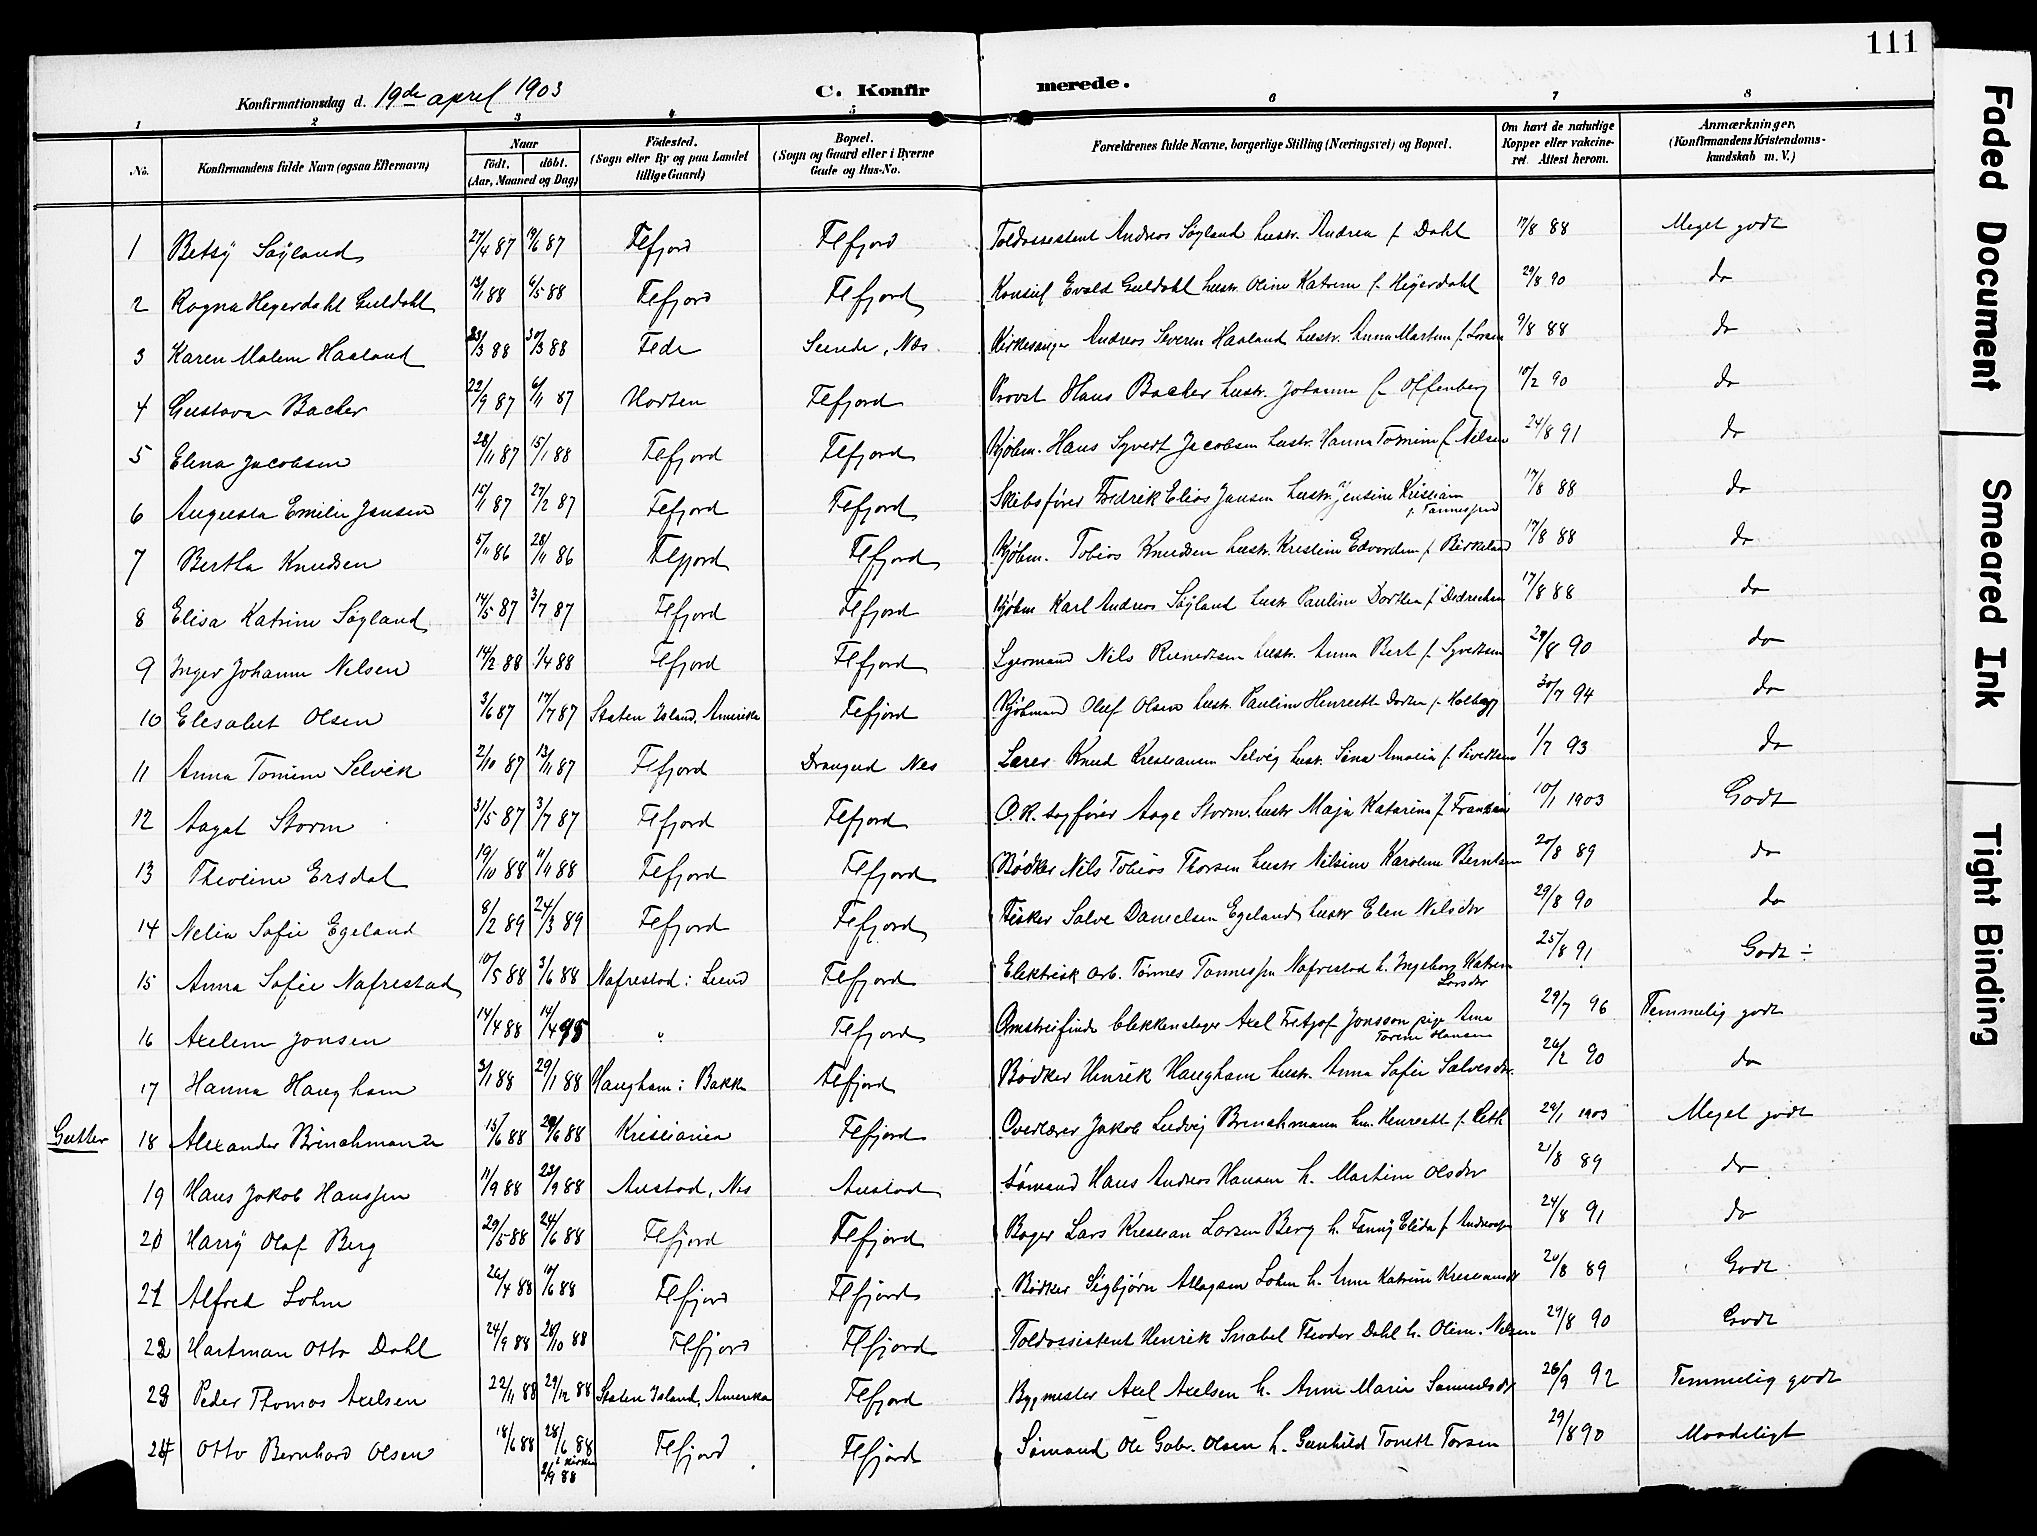 111
Konfirmationsdag d. 19de april 1903
C. Konfirmerede.
1 2 3 4 5 6 7 8
No. Konfirmandens fulde Navn (ogsaa Efternavn) Naar født. døbt. (Aar, Maaned og Dag) Fødested. (Sogn eller By og paa Landet tillige Gaard) Bopæl. (Sogn og Gaard eller i Byerne Gade og Hus-No. Forældrenes fulde Navne, borgerlige Stilling (Næringsvei) og Bopæl. Om havt de naturlige Kopper eller vakcineret. Attest herom. Anmærkninger. (Konfirmandens Kristendomskundskab m. V.)
1 Betsy Søyland 27/4 87 19/6 87 Flefjord Flefjord Toldassistent Andreas Søyland hustr. Andrea f. Dahl 17/8 88 Meget godt
2 Ragna Heyerdahl Guldahl 13/1 88 6/5 88 Flefjord Flefjord Konsul Evald Guldahl hustr. Oline Katrine f. Heyerdahl 29/8 90 do
3 Karen Malene Haaland 23/3 88 30/3 88 Fede Seende, Nes Kirkesanger Andreas Severin Haaland hustr. Anna Martine f. Larsen 9/8 88 do
4 Gustava Bacher 22/9 87 6/11 87 Horten Flefjord Provst Hans Bacher hustr. Johanne f. Offenberg 10/2 90 do
5 Elena Jacobsen 28/11 87 15/1 88 Flefjord Flefjord Kjøbm. Hans Syvert Jacobsen hustr. Hanna Tomine f. Nilsen 24/8 91 do
6 Augusta Emilie Jansen 15/1 87 27/2 87 Flefjord Flefjord Skibsfører Fredrik Elias Jansen hustr. Jensine Kristiane f. Tønnessen 17/8 88 do
7 Bertha Knudsen 5/11 86 28/11 86 Flefjord Flefjord Kjøbm. Tobias Knudsen hustr. Kristine Edvardine f. Birkeland 17/8 88 do
8 Elisa Katrine Søyland 14/5 87 3/7 87 Flefjord Flefjord Kjøbm Karl Andreas Søyland hustr Pauline Dorthea f. Didrichsen 17/8 88 do
9 Inger Johanne Nilsen 14/2 88 1/4 88 Flefjord Flefjord Nils hustr. Anna Bert f. Syvertsen 29/8 90 do
10 Elisabet Olsen 3/6 87 17/7 87 Staten Island, Amerika Flefjord Kjøbmand Oluf Olsen hustr. Pauline Henriette Dorthea f. 30/7 94 do
11 Anna Tomine Selvik 2/10 87 13/11 87 Flefjord Drangeid Nes Lærer Knud Kristiansen Selvig hustr. Sina Amalia f. Sivertsen 1/7 93 do
12 Aagot Storm 31/5 87 3/7 87 Flefjord Flefjord O.R. sagfører Aage Storm hustr Maja Katarina f. Frantzen 10/1 1903 Godt
13 Theoline Ersdal 19/10 88 11/11 88 Flefjord Flefjord Bødker Nils Tobias Thorsen hustr Nilsine Karoline Berntsen 20/8 89 do
14 Nelia Sofie Egeland 8/2 89 24/3 89 Flefjord Flefjord Fisker Salve Danielsen Egeland hustr Elen Nilsdtr 29/8 90 do
15 Anna Sofie Nafrestad 10/5 88 3/6 88 Nafrestad i Lund Flefjord Elektrisk arb. Tønnes Tønnessen Nafrestad h. Ingeborg Katrine Larsdtr 25/8 91 Godt ÷
16 Axeline Jonsen 14/4 88 14/4 95 " Flefjord blikkenslager Axel Fritjof Jonsson pige Ana Torine Hansen 29/7 96 Temmelig godt
17 Hanna Haugham 3/1 88 29/1 88 Haugham i Bakke Flefjord Bødker Henrik Haugham hustr. Anna Sofie Salvesdtr. 26/2 90 do
Gutter 18 Alexander Brinchmann 15/6 88 29/6 88 Kristiania Flefjord Overlærer Jakob Ludvig Brinchmann h. Henriette f. Leth 29/1 1903 Meget godt
19 Hans Jakob Hanssen 11/9 88 23/9 88 Austad, Nes Austad Sømand Hans Andreas Hansen h. Martine Olsdtr 21/8 89 do
20 Harry Olaf Berg 29/5 88 24/6 88 Flefjord Flefjord Bager Lars Kristian Larsen Berg h. Fanny Elida f. Andreassen 24/8 91 do
21 Alfred Lohne 26/4 88 10/6 88 Flefjord Flefjord Bødker Sigbjørn Atlagsen Lohne h. Anne Katrine Kristiansdtr 20/8 89 Godt
22 Hartman Otto Dahl 24/9 88 28/10 88 Flefjord Flefjord Toldassistent Henrik Snabel Theodor Dahl h. Oline Nilsen 29/8 90 Godt
23 Peder Thomas Axelsen 22/11 88 29/12 88 Staten Island, Amerika Flefjord Bygmester Axel Axelsen h. Anne Marie Samuelsdtr 26/9 92 Temmelig godt
24 Otto Bernhard Olsen 18/6 88 28/6 88 i kirken 2/9 88 Flefjord Flefjord Sømand Ole Gabr. Olsen h. Gunhild Tonette Torsen 29/8 90 Maadeligt
Faded Document
Smeared Ink
Tight Binding